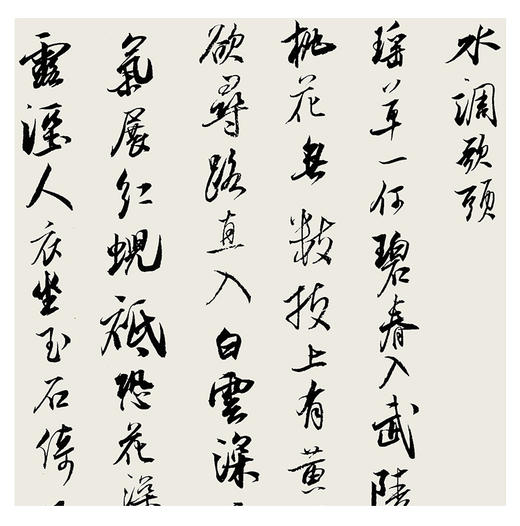 水調歌頭
瑶草一何碧春入武陵
桃花無數枝上有黃
欲尋路直入白雲深
氣展虹蜺祗恐花深
露溼人衣坐玉石倚